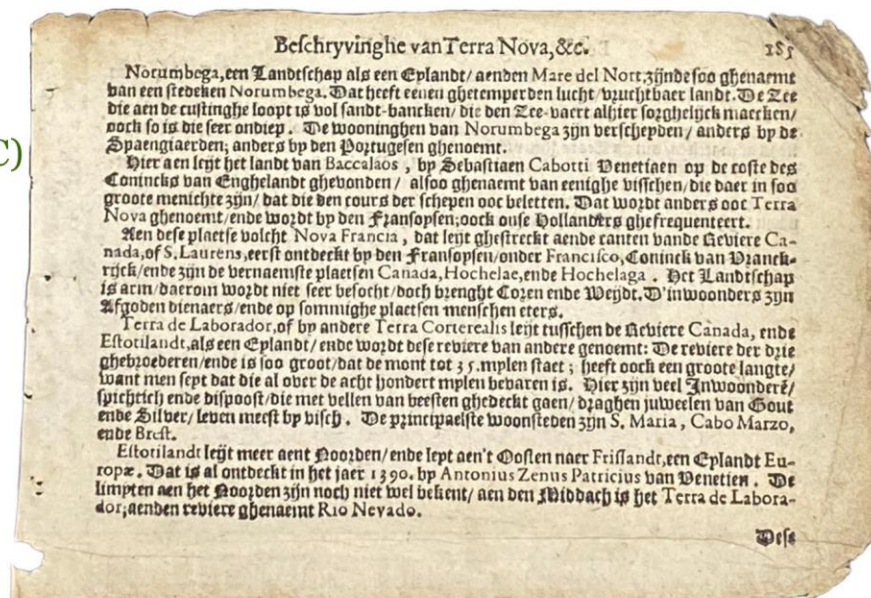 C)
Beschryvinghe van Terra Nova, &c. 185
Norumbega, een Landtschap als een Eylandt/ aenden Mare del Nort, zijnde soo ghenaemt
van een stedeken Norumbega. Dat heeft eenen ghetemperden lucht/ vruchtbaer landt. De Zee
die aen de custinghe loopt is vol sandt-bancken/ die den Zee-vaert alhier sorghelijck maecken/
oock so is die seer ondiep. De wooninghen van Norumbega zijn verscheyden/ anders by de
Spaengiaerden; anders by den Portugesen ghenoemt.
Hier aen leyt het landt van Baccalaos, by Sebastiaen Cabotti Venetiaen op de coste des
Conincks van Enghelandt ghevonden/ alsoo ghenaemt van eenighe visschen/ die daer in soo
groote menichte zijn/ dat die den cours der schepen ooc beletten. Dat wordt anders ooc Terra
Nova ghenoemt/ ende wordt by den Fransoysen; oock onse Hollanders ghefrequenteert.
Aen dese plaetse volcht Nova Francia, dat leyt ghestreckt aende canten vande Reviere Ca-
nada, of S. Laurens, eerst ontdeckt by den Fransoysen/ onder Francisco, Coninck van Vranck-
rijck/ ende zijn de vernaemste plaetsen Canada, Hochelae, ende Hochelaga. Het Landtschap
is arm/ daerom wordt niet seer besocht/ doch brenght Coren ende Weydt. D'inwoonders zijn
Afgoden dienaers/ ende op sommighe plaetsen menschen eters.
Terra de Laborador, of by andere Terra Corterealis leyt tusschen de Reviere Canada, ende
Estotilandt, als een Eylandt/ ende wordt dese reviere van andere genoemt: De reviere der drie
ghebroederen/ ende is soo groot/ dat de mont tot 35. mylen staet; heeft oock een groote langte/
want men seyt dat die al over de acht hondert mylen bevaren is. Hier zijn veel Inwoonderē/
spichtich ende dispoost/ die met vellen van beesten ghedeckt gaen/ draghen juweelen van Gout
ende Silver/ leven meest by visch. De principaelste woonsteden zijn S. Maria, Cabo Marzo,
ende Brest.
Estotilandt leyt meer aent Noorden/ ende leyt aen't Oosten naer Frislandt, een Eylandt Eu-
ropæ. Dat is al ontdeckt in het jaer 1390. by Antonius Zenus Patricius van Venetien. De
limyten aen het Noorden zijn noch niet wel bekent/ aen den Middach is het Terra de Labora-
dor; aenden reviere ghenaemt Rio Nevado.
Dese